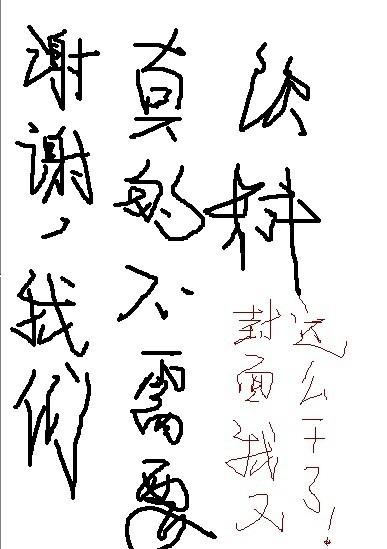 谢谢，我们
真的不需要
饮料
封面我又
这么干了！